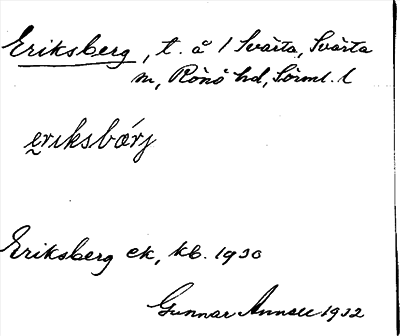 Eriksberg, t. å 1 Svärta, Svärta
sn, Rönö hd, Sörml. l
eriksbærj
Eriksberg ek, kb. 1930
Gunnar 1932